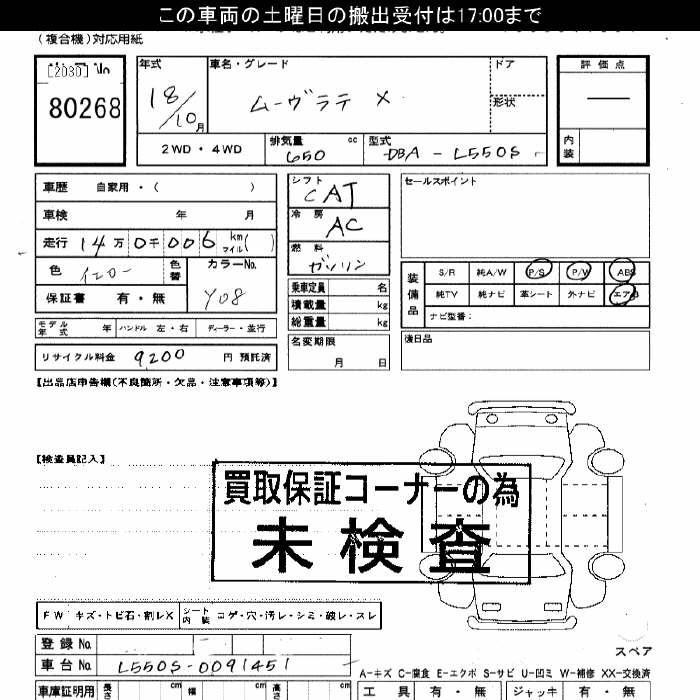 この車両の土曜日の搬出受付は17:00まで
(複合機)対応用紙
[2030] No
80268
年式 18/10月
車名・グレード ムーヴラテ X
ドア
形状
評価点 —
内装
2WD・4WD
排気量 650 cc
型式 DBA-L550S
車歴 自家用・( )
車検 年 月
走行 14万0千006 km マイル( )
色 イエロー 色替
カラーNo. Y08
保証書 有・無
モデル年式 年 ハンドル 左・右 ディーラー・並行
リサイクル料金 9200 円 預託済
シフト CAT
冷房 AC
燃料 ガソリン
乗車定員 名
積載量 kg
総重量 kg
名変期限
月 日
セールスポイント
装備品
S/R 純A/W P/S P/W ABS
純TV 純ナビ 革シート 外ナビ エアB
ナビ型番:
後日品
【出品店申告欄(不良箇所・欠品・注意事項等)】
【検査員記入】
買取保証コーナーの為
未検査
FW キズ・トビ石・割レX
シート内装 コゲ・穴・汚レ・シミ・破レ・スレ
登録No.
車台No. L550S-0091451
スペア
A-キズ C-腐食 E-エクボ S-サビ U-凹ミ W-補修 XX-交換済
車庫証明用 長さ cm 幅 cm 高さ cm
工具 有・無 ジャッキ 有・無